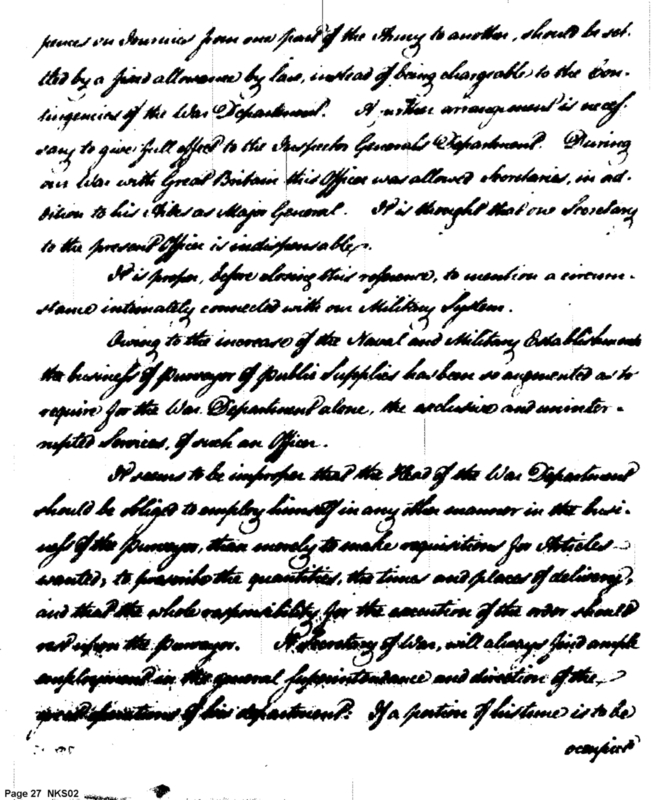 pences on Journies from one part of the Army to another, should be set-
tled by a fixed allowance by law, instead of being chargeable to the Con-
tingencies of the War Department. A further arrangement is neces-
sary to give full effect to the Inspector Generals Department. During
our War with Great Britain this Officer was allowed Secretaries, in ad-
dition to his Aides as Major General. It is thought that one Secretary
to the present Officer is indispensable.
It is proper, before closing this reference, to mention a circum-
stance intimately connected with our Military System.
Owing to the increase of the Naval and Military Establishments
the business of Purveyor of Public Supplies has been so augmented as to
require for the War Department alone, the exclusive and uninter-
rupted Services, of such an Officer.
It seems to be improper that the Head of the War Department
should be obliged to employ himself in any other manner in the busi-
ness of the Purveyor, than merely to make requisitions for Articles
wanted; to prescribe the quantities, the times and places of delivery,
and that the whole responsibility for the execution of the order should
rest upon the Purveyor. A Secretary of War, will always find ample
employment in the general Superintendance and direction of the
great operations of his department. If a portion of his time is to be
occupied
Page 27 NKS02